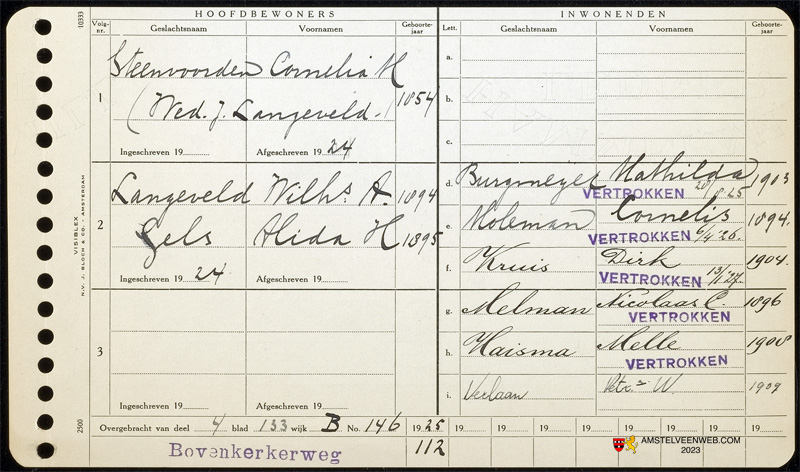 HOOFDBEWONERS
INWONENDEN
Volg-nr. Geslachtsnaam Voornamen Geboorte-jaar
Lett. Geslachtsnaam Voornamen Geboorte-jaar
10333
1 Steenvoorden Cornelia H
(Wed. J. Langeveld.) 1854
Ingeschreven 19 Afgeschreven 19 24
2 Langeveld Wilhs. A. 1894
Gels Alida H 1895
Ingeschreven 19 24 Afgeschreven 19
3
Ingeschreven 19 Afgeschreven 19
a.
b.
c.
d. Burgmeijer Mathilda 1903
VERTROKKEN 20/8 25
e. Moleman Cornelis 1894.
VERTROKKEN 6/4 26.
f. Kruis Dirk 1904.
VERTROKKEN 13/1 27.
g. Melman Nicolaas C. 1896
VERTROKKEN
h. Haisma Melle 1908
VERTROKKEN
i. Verlaan Petr. W. 1909
VISIBLEX
N.V. J. BLOCH & CO. - AMSTERDAM
2500
Overgebracht van deel 4 blad 133 wijk B No. 146 19 25 19 19 19 19 19 19 19 19
Bovenkerkerweg 112
AMSTELVEENWEB.COM
2023